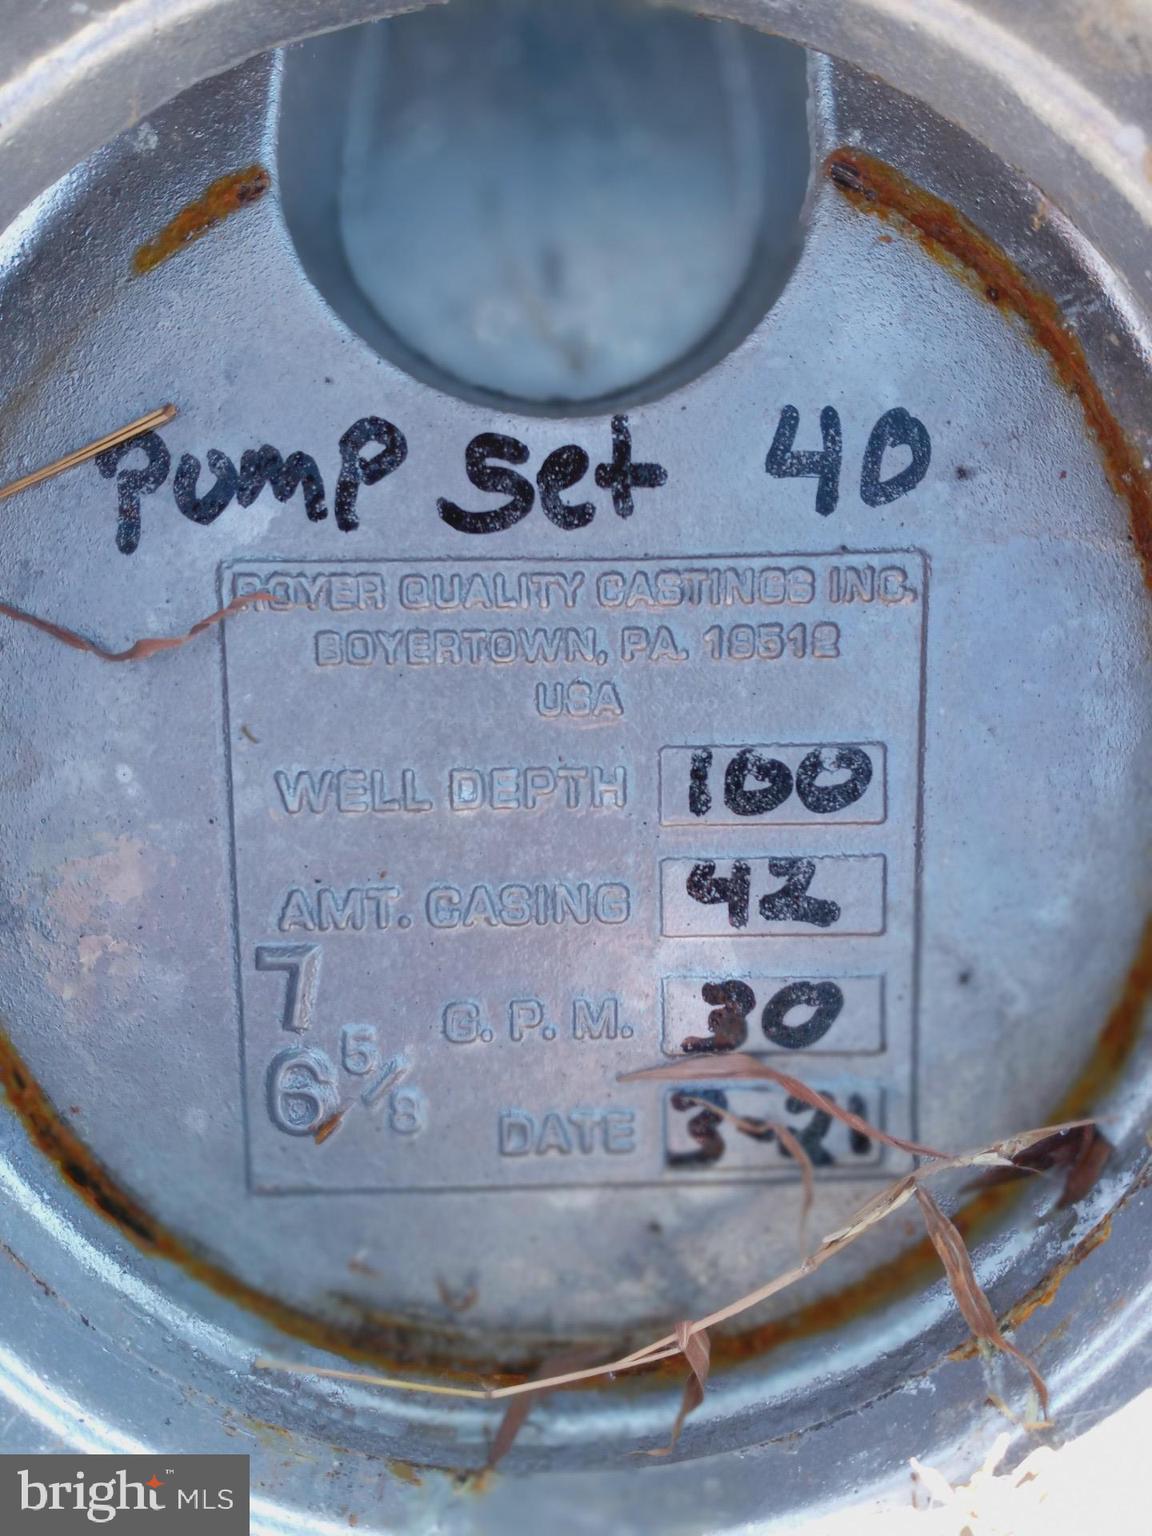 PUMP Set 40
ROYER QUALITY CASTINGS INC.
BOYERTOWN, PA. 19512
USA
WELL DEPTH 100
AMT. CASING 42
7
G. P. M. 30
6 5/8
DATE 3-21
bright™ MLS